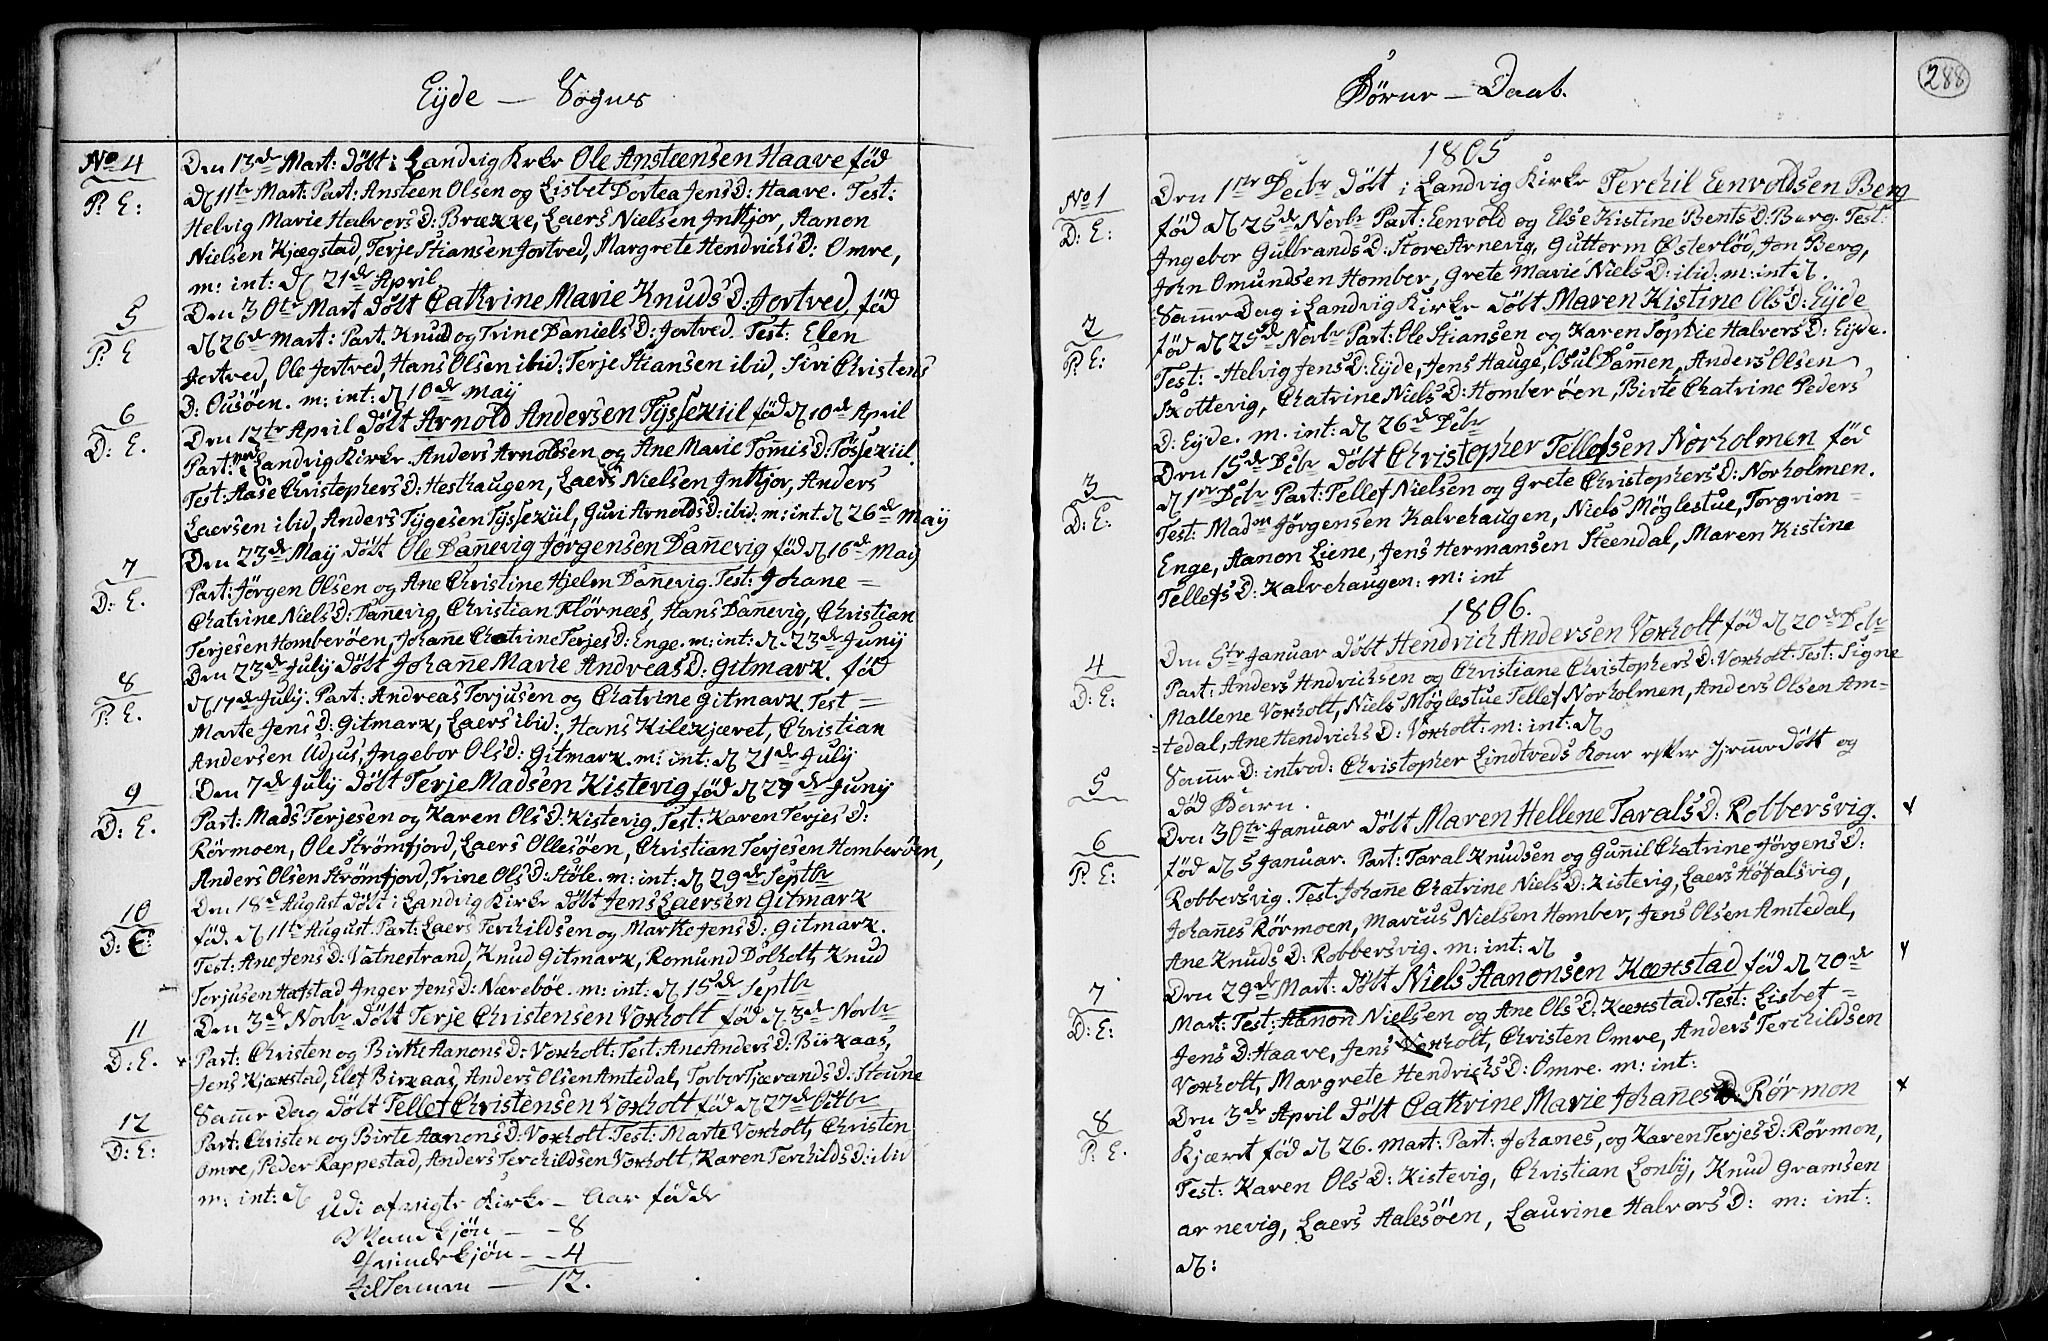 Eyde — Sogns
No 4
P. E:
Den 13de Mart: døbt i Landvig Kirke Ole Ansteensen Haave fød
d 11te Mart: Part: Ansteen Olsen og Lisbet Dortea JensD: Haave. Test:
Helvig Marie HalvorsD: Brække, Laers Nielsen Inktjor, Aanon
Nielsen Kjægstad, Terje Stiansen Jortved, Margrete HendrichsD: Omre,
m: int: d 21de April
5
P. E
Den 30te Mart døbt Cathrine Marie KnudsD: Jortved, fød
d 26de Mart: Part. Knud og Trine DanielsD: Jortved. Test: Elen
Jortved, Ole Jortved, Hans Olsen ibid: Terje Stiansen ibid, Siri Christens
D: Ousøen. m: int: d 10de May
6
D: E.
Den 12te April døbt Arnold Andersen Tyssekiil fød d 10de April
Part: ved Landvig Kirke. Anders Arnoldsen og Ane Marie TommisD: Tøssekiil.
Test: Aase ChristophersD: Hesthaugen, Laers Nielsen Inktjor, Anders
Laersen ibid, Anders Tygesen Tyssekiil, Guri ArnoldsD: ibid: m: int: d 26de May
7
D: E.
Den 23de May døbt Ole Dannevig Jørgensen Dannevig fød d 16de May
Part: Jørgen Olsen og Ane Christine Hjelm Dannevig. Test: Johane =
Chatrine NielsD: Dannevig, Christian Flørnees, Hans Dannevig, Christian
Terjesen Homberøen, Johane Chatrine TerjesD: Enge. m: int: d. 23de Juny
8
P. E.
Den 23de July døbt Johanne Marie AndreasD: Gitmark. fød
d 17de July. Part: Andreas Torjusen og Chatrine Gitmark Test =
Marte JensD: Gitmark, Laers ibid:, Hans Kilekjæret, Christian
Andersen Udjus, Ingebor OlsD: Gitmark. m: int: d 21de July
9
D: E.
Den 7de July døbt Terje Madsen Kistevig fød d 29de Juny
Part: Mads Terjesen og Karen OlsD: Kistevig Test: Karen TerjesD:
Rørmoen, Ole Strømfjord, Laers Ollesøen, Christian Terjesen Homberøen,
Anders Olsen Strømfjord, Trine OlsD: Støle. m: int: d 29de Septbr
10
D: E:
Den 18de August døbt i Landvig Kirke døbt Jens Laersen Gitmark
fød. d 11te August. Part: Laers Terchildsen og Marthe JensD: Gitmark.
Test: Ane JensD: Vatnestrand, Knud Gitmark, Romund Dolholt, Knud
Torjusen Hafstad Inger JensD: Nærebøe. m: int: d 15de Septbr
11
D: E.
Den 3de Novbr døbt Terje Christensen Voxholt fød d 3de Novbr
Part: Christen og Birthe AanonsD: Voxholt: Test: Ane AndersD: Birkaas,
Jens Kjæxstad, Elef Birkaas, Anders Olsen Amtedal, Torbor TjærandsD: Steune
12
D: E:
Samme Dag døbt Tellef Christensen Voxholt fød d 27de Octbr
Part: Christen og Birte AanonsD: Voxholt: Test: Marte Voxholt, Christen
Omre, Peder Rappestad, Anders Terchildsen Voxholt, Karen TerchildsD: ibid
m: int: d
Udi afvigte Kirke — Aar fødde
Mandkjøn — - 8
Qvindekjøn - - 4
Tilsammen — 12.
Børne — Daab.
288
1805
No 1
D: E:
Den 1ste Decbr døbt i Landvig Kirke Terchil Eenvoldsen Berg
fød d 25de Novbr Part: Eenvold og Else Kistine BentsD: Berg. Test:
Ingebor GulbrandsD: Store Arnevig, Guttorm Østerlød, Jon Berg,
John Omundsen Homber, Grete Marie NielsD: ibid. m: int d.
2
P: E:
Samme Dag i Landvig Kirke døbt Maren Kistine OlsD: Eyde
fød d 25de Novbr Part: Ole Stiansen og Karen Sophie HalversD: Eyde.
Test: - Helvig JensD: Eyde, Jens Hauge, Osul Dammen, Anders Olsen
Skottevig, Chatrine NielsD: Homberøen, Birte Chatrine Peders
D: Eyde. m. int: d 26de Dcbr
3
D: E:
Den 15de Dcbr døbt Christopher Tellefsen Norholmen fød
d 1ste Dcbr Part: Tellef Nielsen og Grete ChristophersD: Norholmen.
Test: Madm Jørgensen Kalvehaugen, Niels Møglestue, Torgrim =
Enge, Aanon Liene, Jens Hermansen Steendal, Maren Kistine
TellefsD: Kalvehaugen: m: int
1806.
4
D: E:
Den 5te Januar døbt Hendrich Andersen Voxholt fød d 20de Dcbr
Part: Anders Hndrichsen og Christiane ChristophersD: Voxholt: Test: Signe
Mallene Voxholt, Niels Møglestue Tellef Norholmen, Anders Olsen Am=
=tedal, Ane HendrichsD: Voxholt: m: int: d,
5
Samme D: introd: Christopher Lindtveds Kone efter hjemme døbt og
død Barn.
6
P: E:
Den 30te Januar døbt Maren Hellene TaralsD: Robbersvig.
fød d 5 Januar. Part: Taral Knudsen og Gunnil Chatrine JørgensD:
Robbersvig. Test: Johane Chatrine NielsD: Kistevig, Laers Høfalsvig,
Johannes Rørmoen, Marcus Nielsen Homber, Jens Olsen Amtedal,
Ane KnudsD: Robbersvig. m: int: d
7
D: E:
Den 29de Mart: døbt Niels Aanonsen Kæxstad fød d 20de
Mart: Test: Aanon Nielsen og Ane OlsD: Kæxstad. Test: Lisbet =
JensD: Haave, Jens Voxholt, Christen Omre, Anders Terchildsen
Voxholt, Margrete HendrichsD: Omre. m: int:
8
P: E.
Den 3de April døbt Cathrine Marie JohannesD: Rørmon
Kjæret fød d 26. Mart: Part: Johanes, og Karen TerjesD: Rørmon,
Test: Karen OlsD: Kistevig, Christian Lonby, Knud Gramsen
arnevig, Laers Aalesøen, Laurine HalvorsD: m: int:
d: